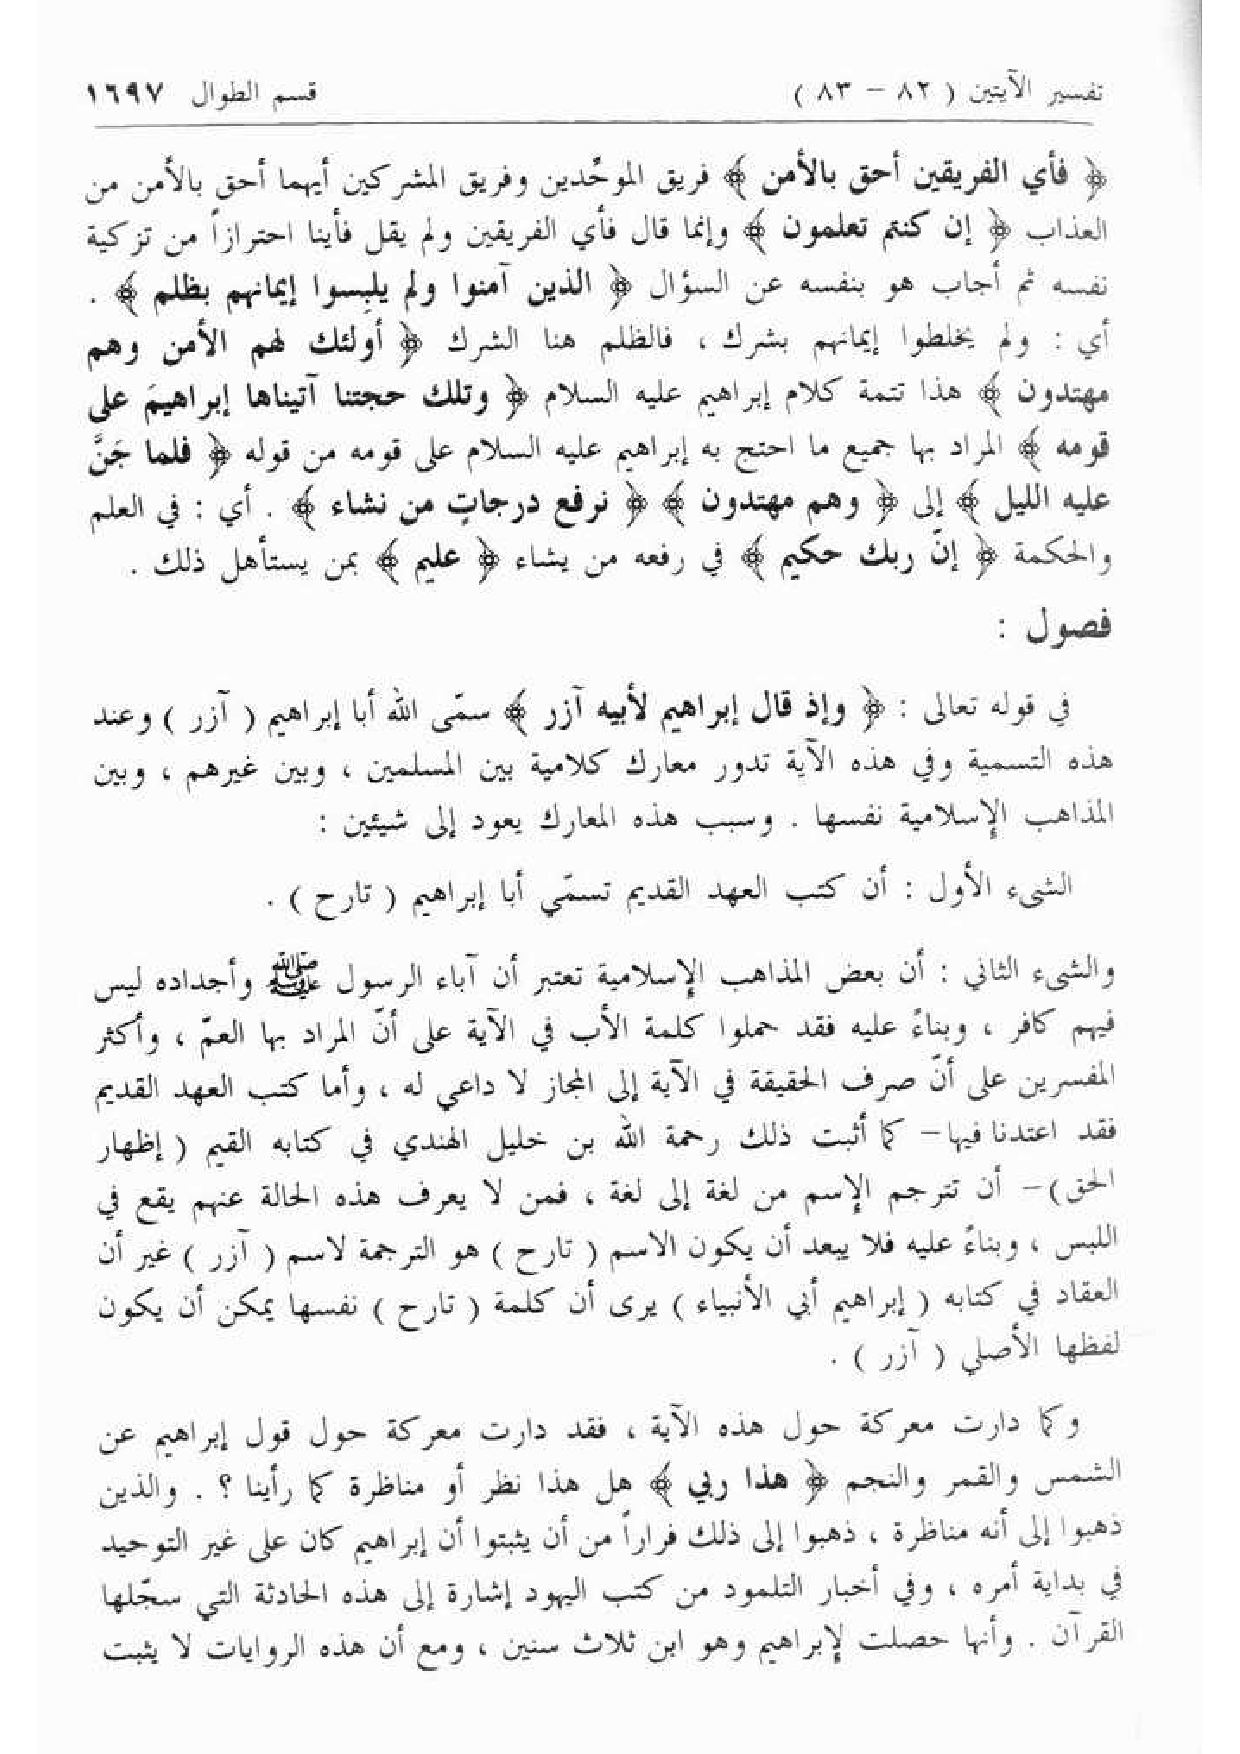 تفسير الآيتين ( ٨٢ – ٨٣ )
قسم الطوال ١٦٩٧
﴿ فأي الفريقين أحق بالأمن ﴾ فريق الموحِّدين وفريق المشركين أيهما أحق بالأمن من
العذاب ﴿ إن كنتم تعلمون ﴾ وإنما قال فأي الفريقين ولم يقل فأينا احترازاً من تزكية
نفسه ثم أجاب هو بنفسه عن السؤال ﴿ الذين آمنوا ولم يلبِسوا إيمانهم بظلم ﴾ .
أي : ولم يخلطوا إيمانهم بشرك ، فالظلم هنا الشرك ﴿ أولئك لهم الأمن وهم
مهتدون ﴾ هذا تتمة كلام إبراهيم عليه السلام ﴿ وتلك حجتنا آتيناها إبراهيمَ على
قومه ﴾ المراد بها جميع ما احتج به إبراهيم عليه السلام على قومه من قوله ﴿ فلما جَنَّ
عليه الليل ﴾ إلى ﴿ وهم مهتدون ﴾ ﴿ نرفع درجاتٍ من نشاء ﴾ . أي : في العلم
والحكمة ﴿ إنّ ربك حكيم ﴾ في رفعه من يشاء ﴿ عليم ﴾ بمن يستأهل ذلك .
فصول :
في قوله تعالى : ﴿ وإذ قال إبراهيم لأبيه آزر ﴾ سمّى الله أبا إبراهيم ( آزر ) وعند
هذه التسمية وفي هذه الآية تدور معارك كلامية بين المسلمين ، وبين غيرهم ، وبين
المذاهب الإسلامية نفسها . وسبب هذه المعارك يعود إلى شيئين :
الشيء الأول : أن كتب العهد القديم تسمّي أبا إبراهيم ( تارح ) .
والشيء الثاني : أن بعض المذاهب الإسلامية تعتبر أن آباء الرسول ﷺ وأجداده ليس
فيهم كافر ، وبناءً عليه فقد حملوا كلمة الأب في الآية على أنّ المراد بها العمّ ، وأكثر
المفسرين على أنّ صرف الحقيقة في الآية إلى المجاز لا داعي له ، وأما كتب العهد القديم
فقد اعتدنا فيها – كما أثبت ذلك رحمة الله بن خليل الهندي في كتابه القيم ( إظهار
الحق ) – أن تترجم الإسم من لغة إلى لغة ، فمن لا يعرف هذه الحالة عنهم يقع في
اللبس ، وبناءً عليه فلا يبعد أن يكون الاسم ( تارح ) هو الترجمة لاسم ( آزر ) غير أن
العقاد في كتابه ( إبراهيم أبي الأنبياء ) يرى أن كلمة ( تارح ) نفسها يمكن أن يكون
لفظها الأصلي ( آزر ) .
وكما دارت معركة حول هذه الآية ، فقد دارت معركة حول قول إبراهيم عن
الشمس والقمر والنجم ﴿ هذا ربي ﴾ هل هذا نظر أو مناظرة كما رأينا ؟ . والذين
ذهبوا إلى أنه مناظرة ، ذهبوا إلى ذلك فراراً من أن يثبتوا أن إبراهيم كان على غير التوحيد
في بداية أمره ، وفي أخبار التلمود من كتب اليهود إشارة إلى هذه الحادثة التي سجّلها
القرآن . وأنها حصلت لإبراهيم وهو ابن ثلاث سنين ، ومع أن هذه الروايات لا يثبت